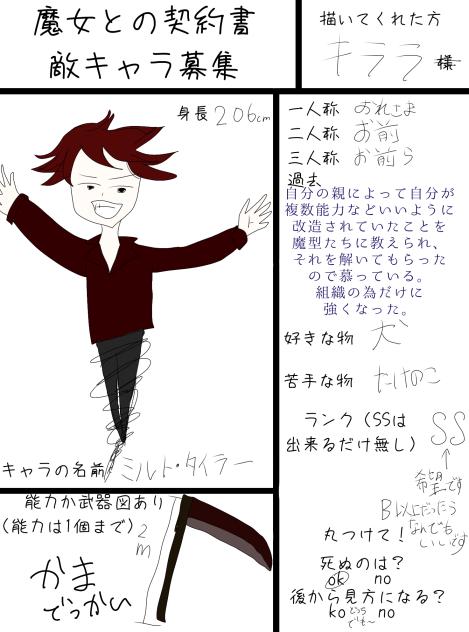 魔女との契約書
敵キャラ募集
描いてくれた方
キララ 様
身長 206cm
一人称 おれさま
二人称 お前
三人称 お前ら
過去
自分の親によって自分が
複数能力などいいように
改造されていたことを
魔型たちに教えられ、
それを解いてもらった
ので慕っている。
組織の為だけに
強くなった。
好きな物 犬
苦手な物 たけのこ
ランク（SSは
出来るだけ無し） SS
希望です
B以上だったら
なんでも
いいです
丸つけて！
死ぬのは？
ok no
後から見方になる？
ko どっち no
でも〜
キャラの名前 ミルト・タイラー
能力か武器図あり
（能力は1個まで）
2m
かま
でっかい